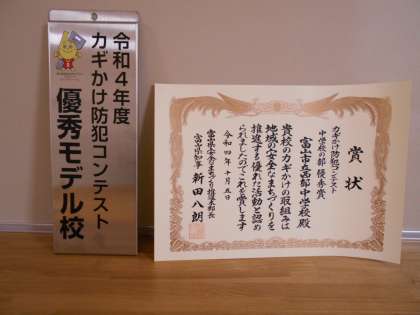 令和4年度
カギかけ防犯コンテスト
優秀モデル校
賞状
カギかけ防犯コンテスト
中学校の部 優秀賞
富山市立西部中学校殿
貴校のカギかけの取組みは
地域の安全なまちづくりを
推進する優れた活動と認め
られましたのでこれを賞します
令和四年十月五日
富山県安全なまちづくり推進本部長
富山県知事 新田八朗